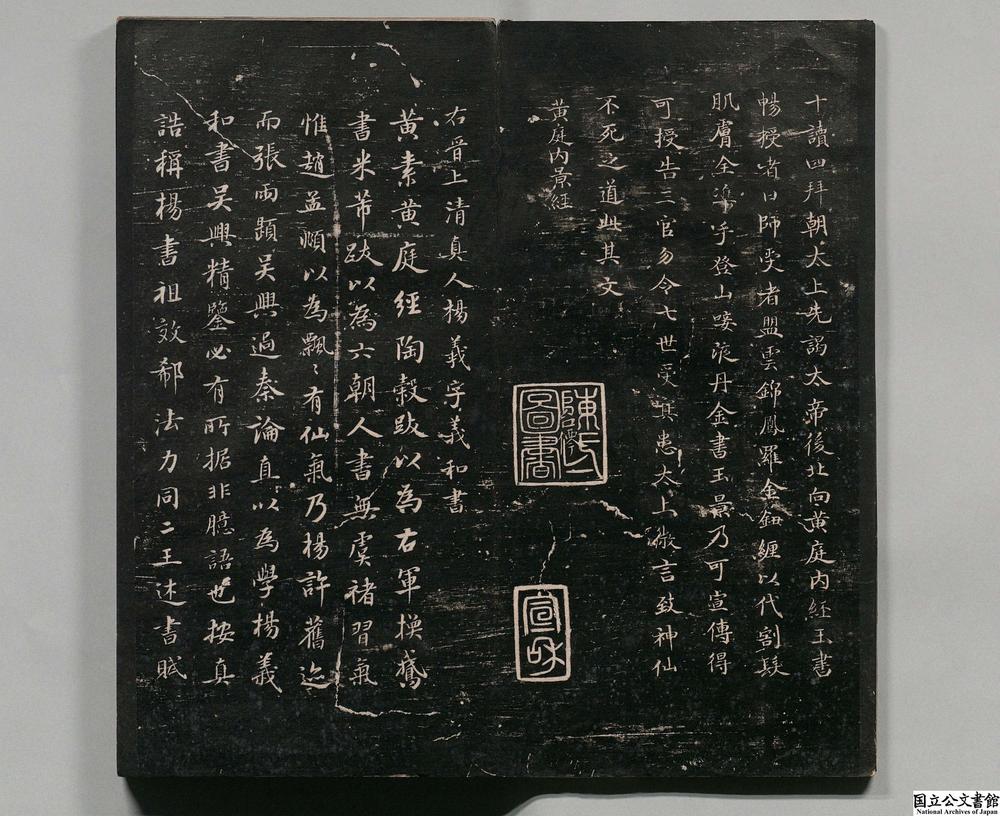 十讀四拜朝太上先謁太帝後北向黄庭内經玉書
暢授者曰師受者盟雲錦鳳羅金鈕纏以代割髮
肌膚全㴜乎登山唼液丹金書玉景乃可宣傳得
可授告三官勿令七世受冥患太上微言致神仙
不死之道此其文
黄庭内景経
陳氏圖書
宣和
右晉上清真人楊羲字羲和書
黄素黄庭經陶穀跋以為右軍換鵞
書米芾跋以為六朝人書無虞褚習氣
惟趙孟頫以為飄〻有仙氣乃楊許舊迹
而張雨題吴興過秦論直以為學楊羲
和書吴興精鑒必有所据非臆語也按真
誥稱楊書祖效郗法力同二王述書賦
国立公文書館
National Archives of Japan